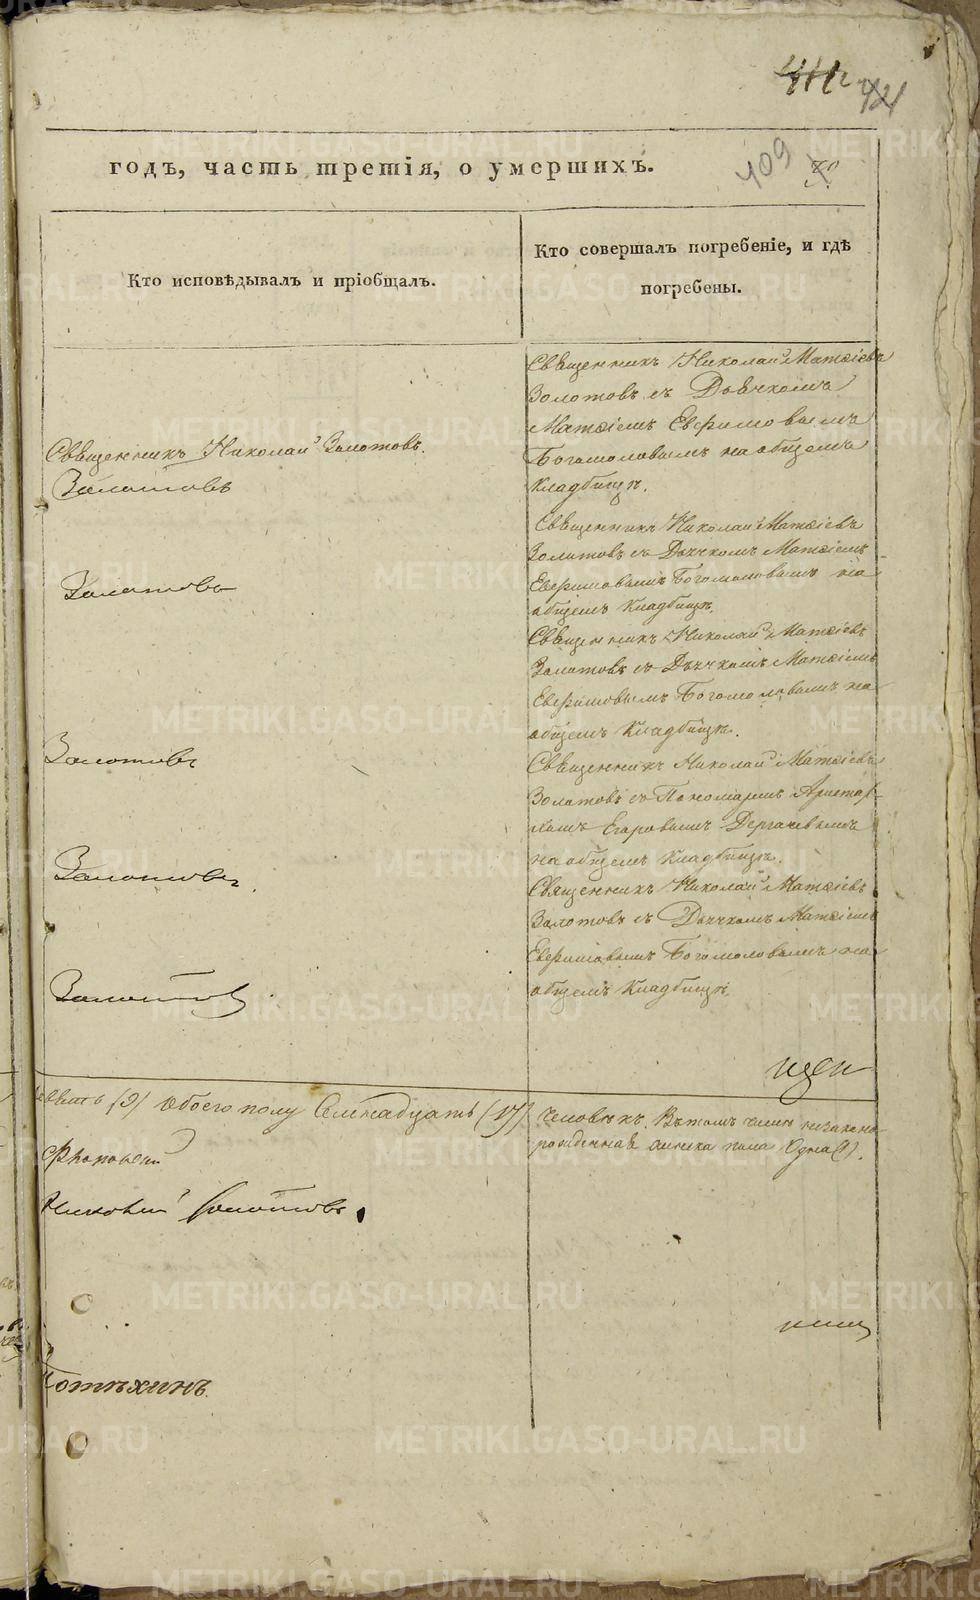 42
годъ, часть третія, о умершихъ.
409
Кто исповѣдывалъ и пріобщалъ.
Кто совершалъ погребеніе, и гдѣ
погребены.
Священникъ Николай Матѳіевъ
Золотовъ съ Дьячкомъ
Матѳіемъ Евфимовымъ
Богомоловымъ на общемъ
кладбищѣ.
Священникъ Николай Золотовъ.
Золотовъ
Священникъ Николай Матѳіевъ
Золотовъ съ Дьячкомъ Матѳіемъ
Евфимовымъ Богомоловымъ на
общемъ кладбищѣ.
Золотовъ
Священникъ Николай Матѳіевъ
Золотовъ съ Дьячкомъ Матѳіемъ
Евфимовымъ Богомоловымъ на
общемъ кладбищѣ.
Золотовъ
Священникъ Николай Матѳіевъ
Золотовъ съ Пономаремъ Аристар-
хомъ Егоровымъ Дергачевымъ
на общемъ кладбищѣ.
Золотовъ
Священникъ Николай Матѳіевъ
Золотовъ съ Дьячкомъ Матѳіемъ
Евфимовымъ Богомоловымъ на
общемъ кладбищѣ.
Золотовъ
(9) обоего полу Семнадцать (17) человѣкъ. Въ томъ числѣ незаконо-
рожденная женска пола Одна (1).
Николай Золотовъ.
METRIKI.GASO-URAL.RU